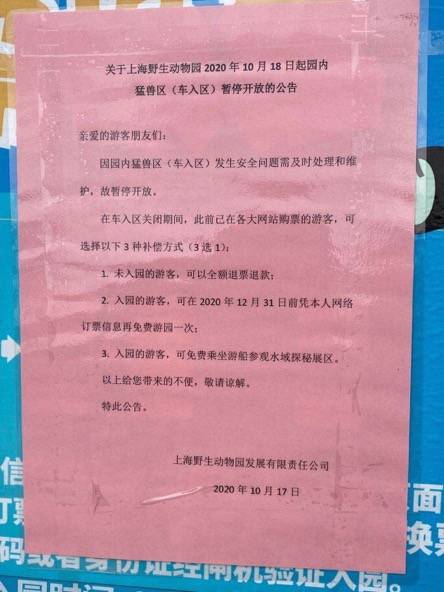 关于上海野生动物园 2020 年 10 月 18 日起园内
猛兽区（车入区）暂停开放的公告
亲爱的游客朋友们：
因园内猛兽区（车入区）发生安全问题需及时处理和维
护，故暂停开放。
在车入区关闭期间，此前已在各大网站购票的游客，可
选择以下 3 种补偿方式（3 选 1）：
1. 未入园的游客，可以全额退票退款；
2. 入园的游客，可在 2020 年 12 月 31 日前凭本人网络
订票信息再免费游园一次；
3. 入园的游客，可免费乘坐游船参观水域探秘展区。
以上给您带来的不便，敬请谅解。
特此公告。
上海野生动物园发展有限责任公司
2020 年 10 月 17 日
信
页面
订票
换票
码或者身份证经闸机验证入园。